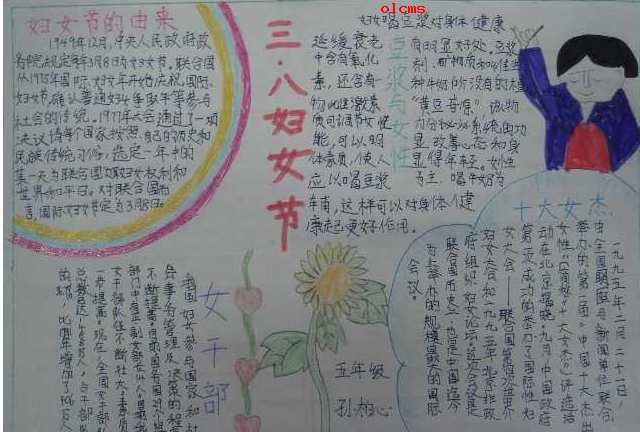 olcms
妇女节的由来
1949年12月,中央人民政府政
务院规定每年3月8日为妇女节。联合国
从1975年国际妇女年开始庆祝国际
妇女节,确认普通妇女争取平等参与
社会的传统。1977年大会通过了一项
决议请每个国家按照自己的历史和
民族传统习俗,选定一年中的
某一天为联合国妇女权利和
世界和平日。对联合国而
言,国际妇女节定为3月8日。
三·八妇女节
妇女喝豆浆对身体健康
豆浆与女性
延缓衰老
中含有氧化
素,还含有
物雌性激素
质可调节女性
能,可以明
体素质,使人
应以喝豆浆
有明显好处,豆浆
剂、矿物质和维生
种牛奶所没有的植
"黄豆苷原",该物
内分泌系统的功
显改善心态和身
显得年轻。女性
为主,喝牛奶为
辅,这样可以对身体健
康起更好作用。
十大女杰
一九九五年二月二十一日
由全国妇联与新闻单位联合
举办的第一届"中国十大杰出
女性"
动在北京揭晓。九月中国政府
第一次成功的举办了国际性妇
女大会——联合国第四次世界
妇女大会和一九九五年北京非政
府组织妇女论坛。
联合国历史上,也是中国迄今
为止举办的规模最大的国际
会议。
女干部
我国妇女参与国家和社
会事务管理及决策的程
不断提高。
部门中有正副女部
女干部队伍不断壮大,素质
一步提高。现在,全国女干部
五年级
孙柏心